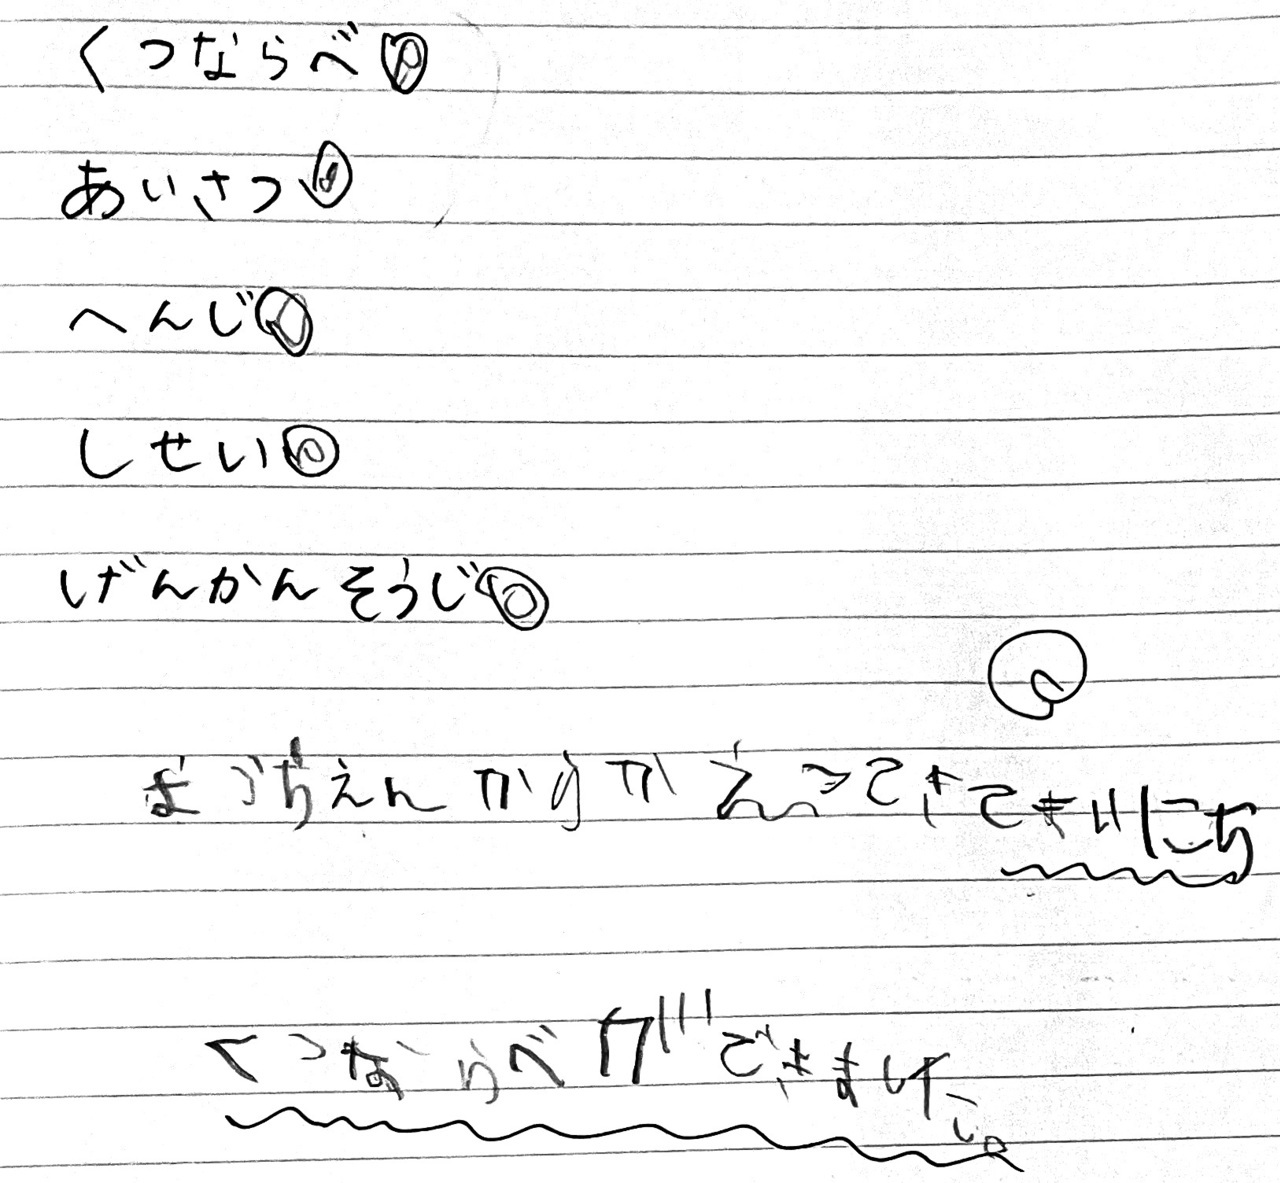 くつならべ
あいさつ
へんじ
しせい
げんかんそうじ
ようちえんからかえってきてまいにち
くつならべができました。